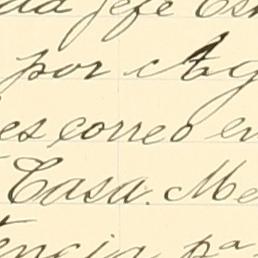 da jefe Es
por Ag
es correo en
Casa. Me
tencia pª